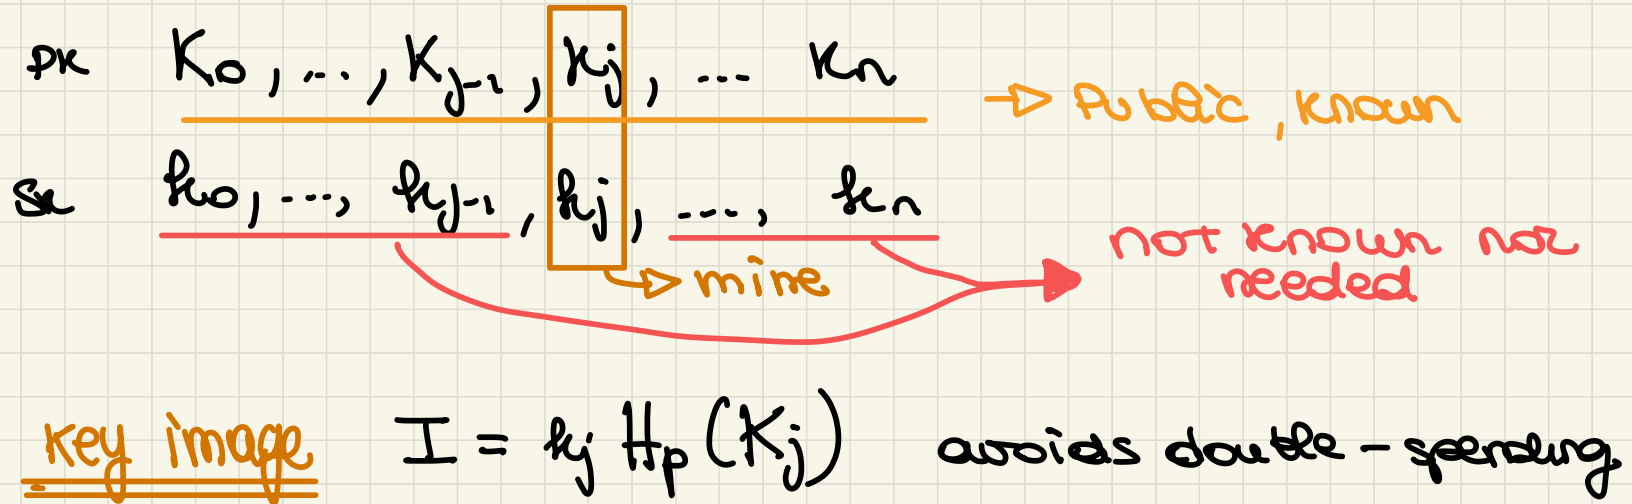 pk K₀, ..., Kⱼ₋₁, Kⱼ, ... Kₙ → Public, known
sk k₀, ..., kⱼ₋₁, kⱼ, ..., kₙ
not known nor
needed
→ mine
key image I = kⱼ Hₚ (Kⱼ) avoids double-spending